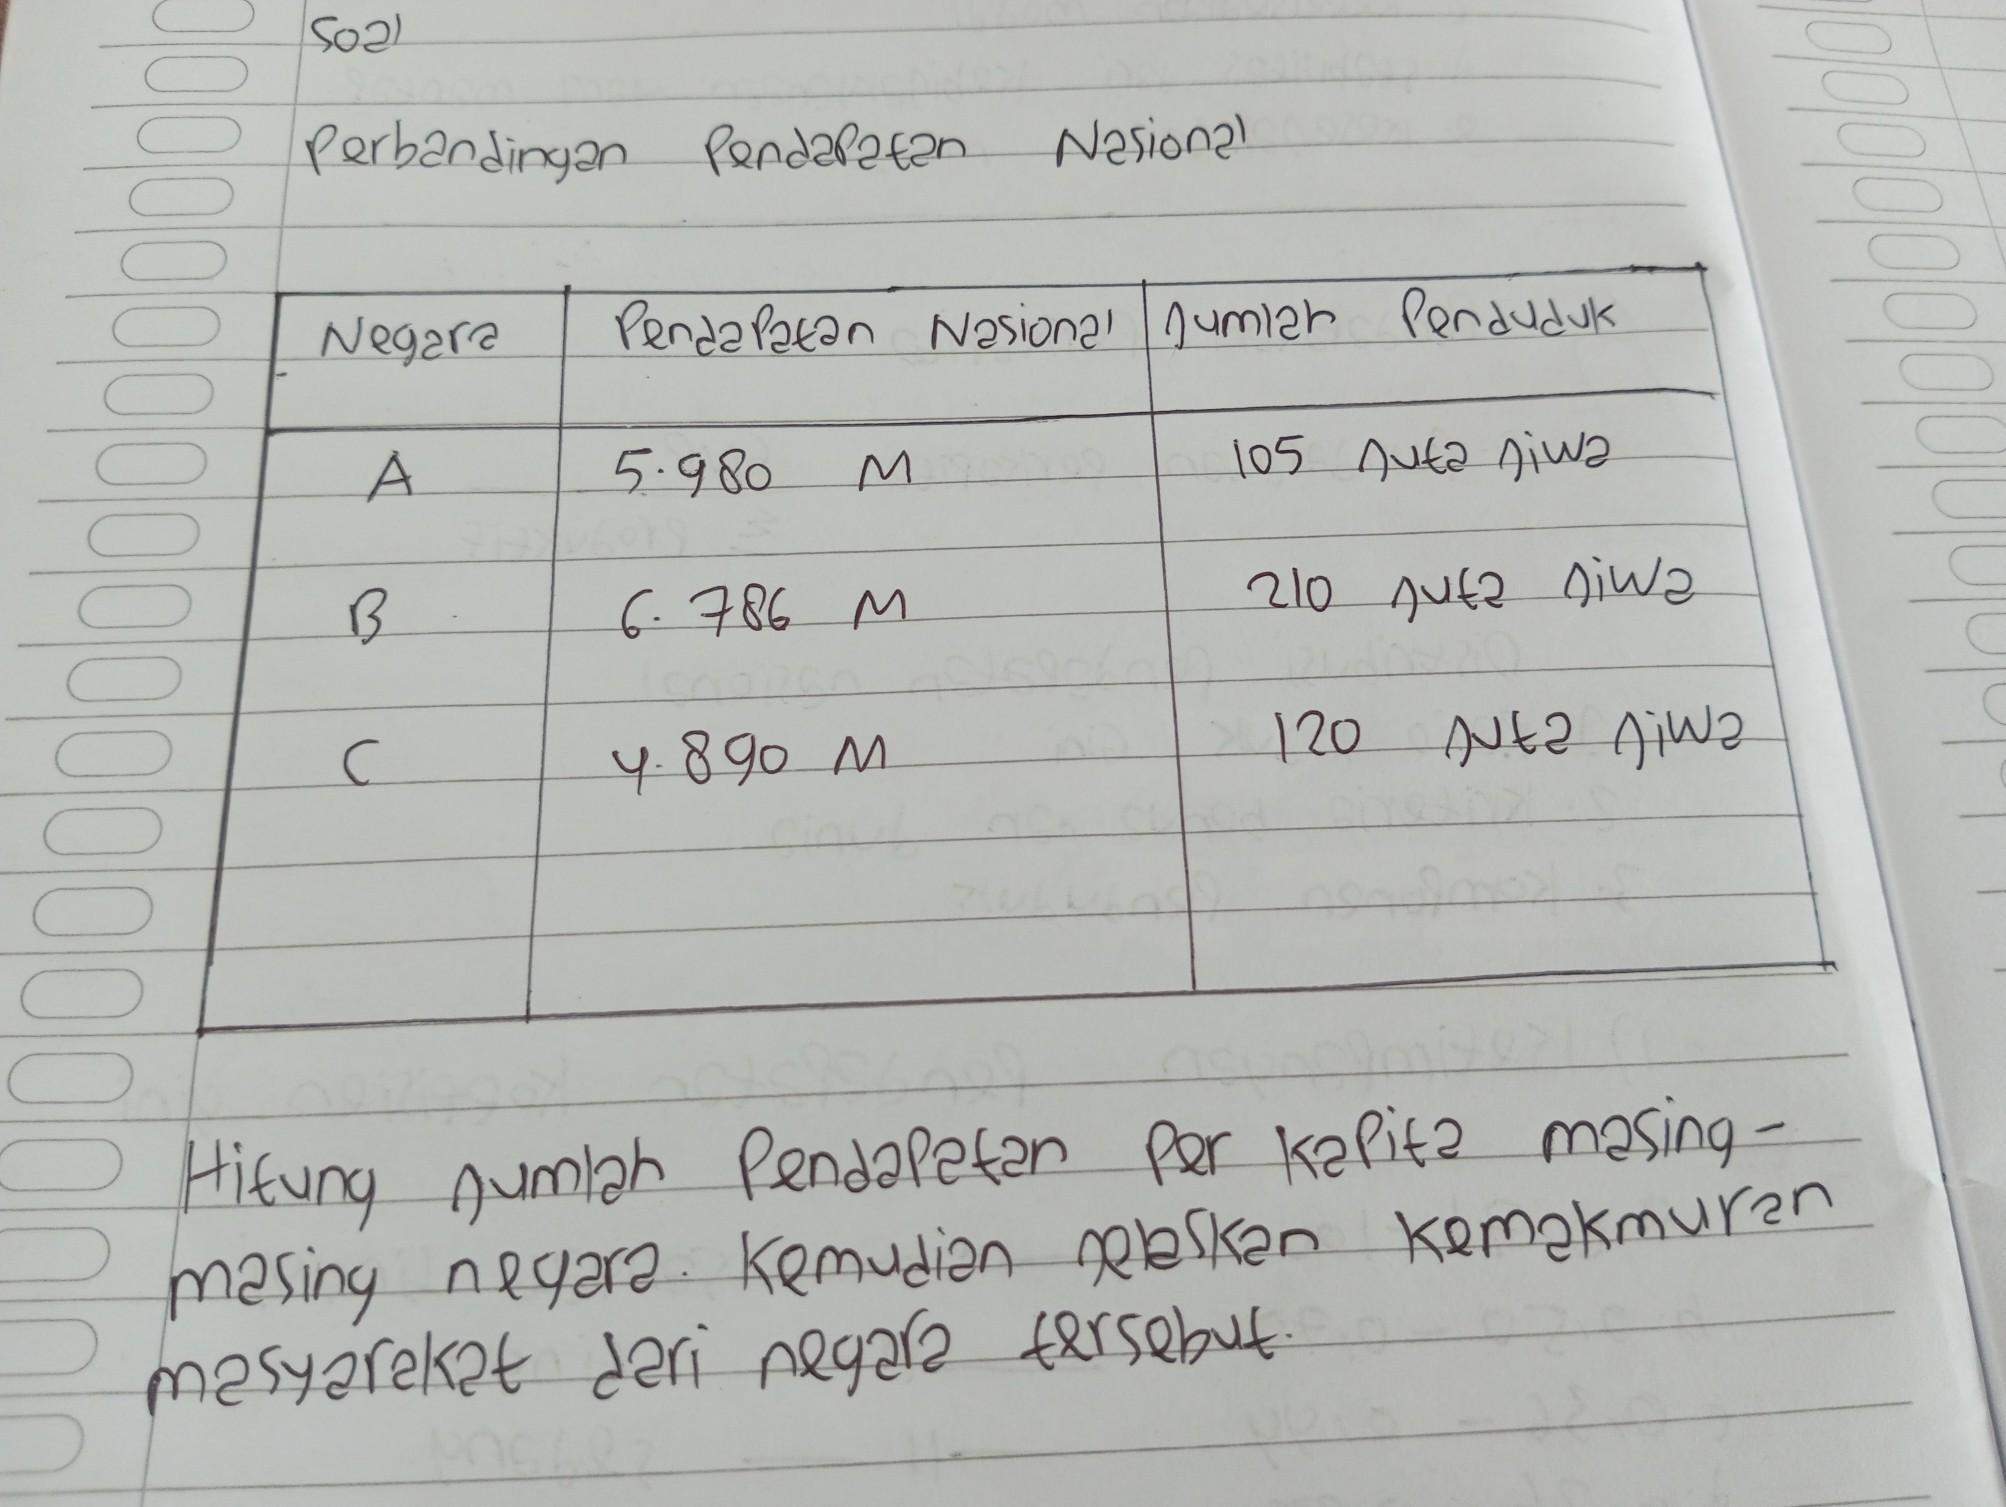 Soal
Perbandingan Pendapatan Nasional
Negara Pendapatan Nasional Jumlah Penduduk
A 5.980 M 105 Juta Jiwa
B 6.786 M 210 Juta Jiwa
C 4.890 M 120 Juta Jiwa
Hitung Jumlah Pendapatan Per Kapita masing-
masing negara. Kemudian Jelaskan Kemakmuran
masyarakat dari negara tersebut.